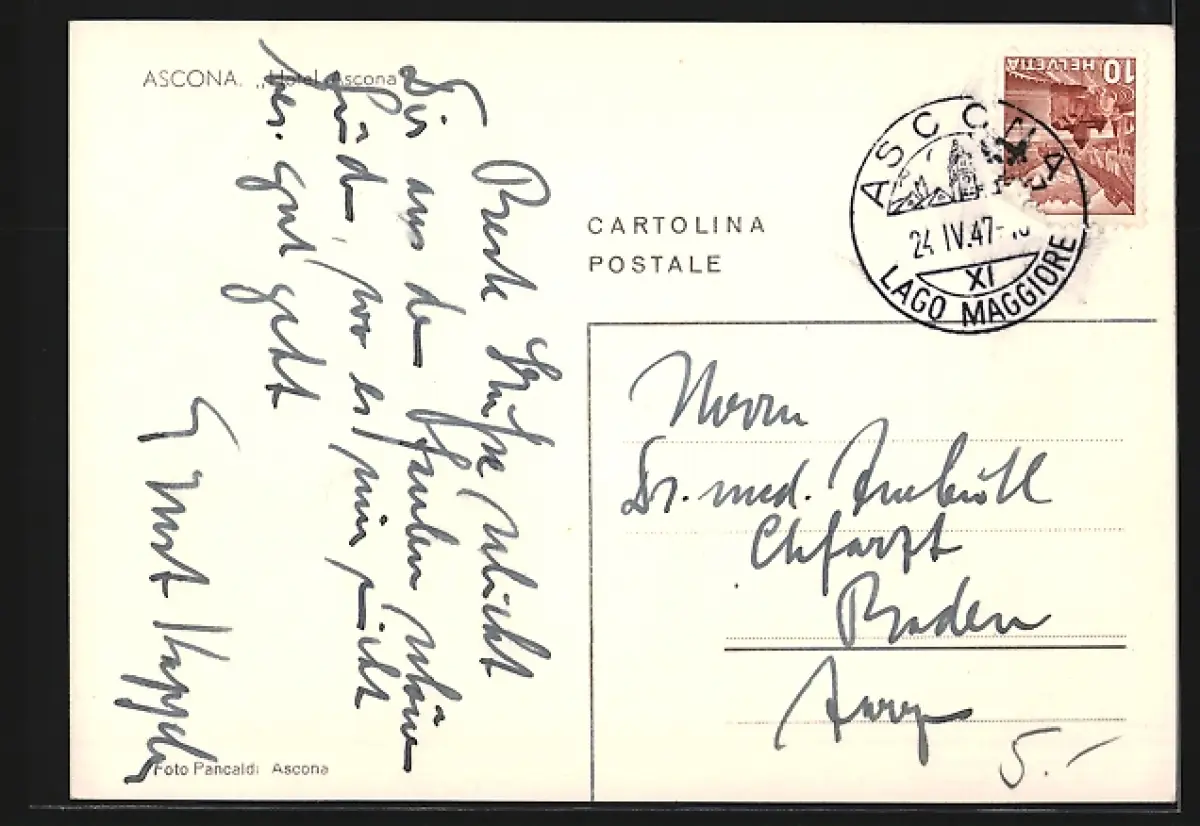 ASCONA. „Hotel Ascona"
Beste Grüsse schickt
Dir aus dem
Süden, wo es mir nicht
bes. gut geht
Ernst
Foto Pancaldi Ascona
CARTOLINA
POSTALE
HELVETIA 10
ASCONA
24 IV.47-
XI
LAGO MAGGIORE
Herrn
Dr. med.
Chefarzt
Baden
Aarg
5.-